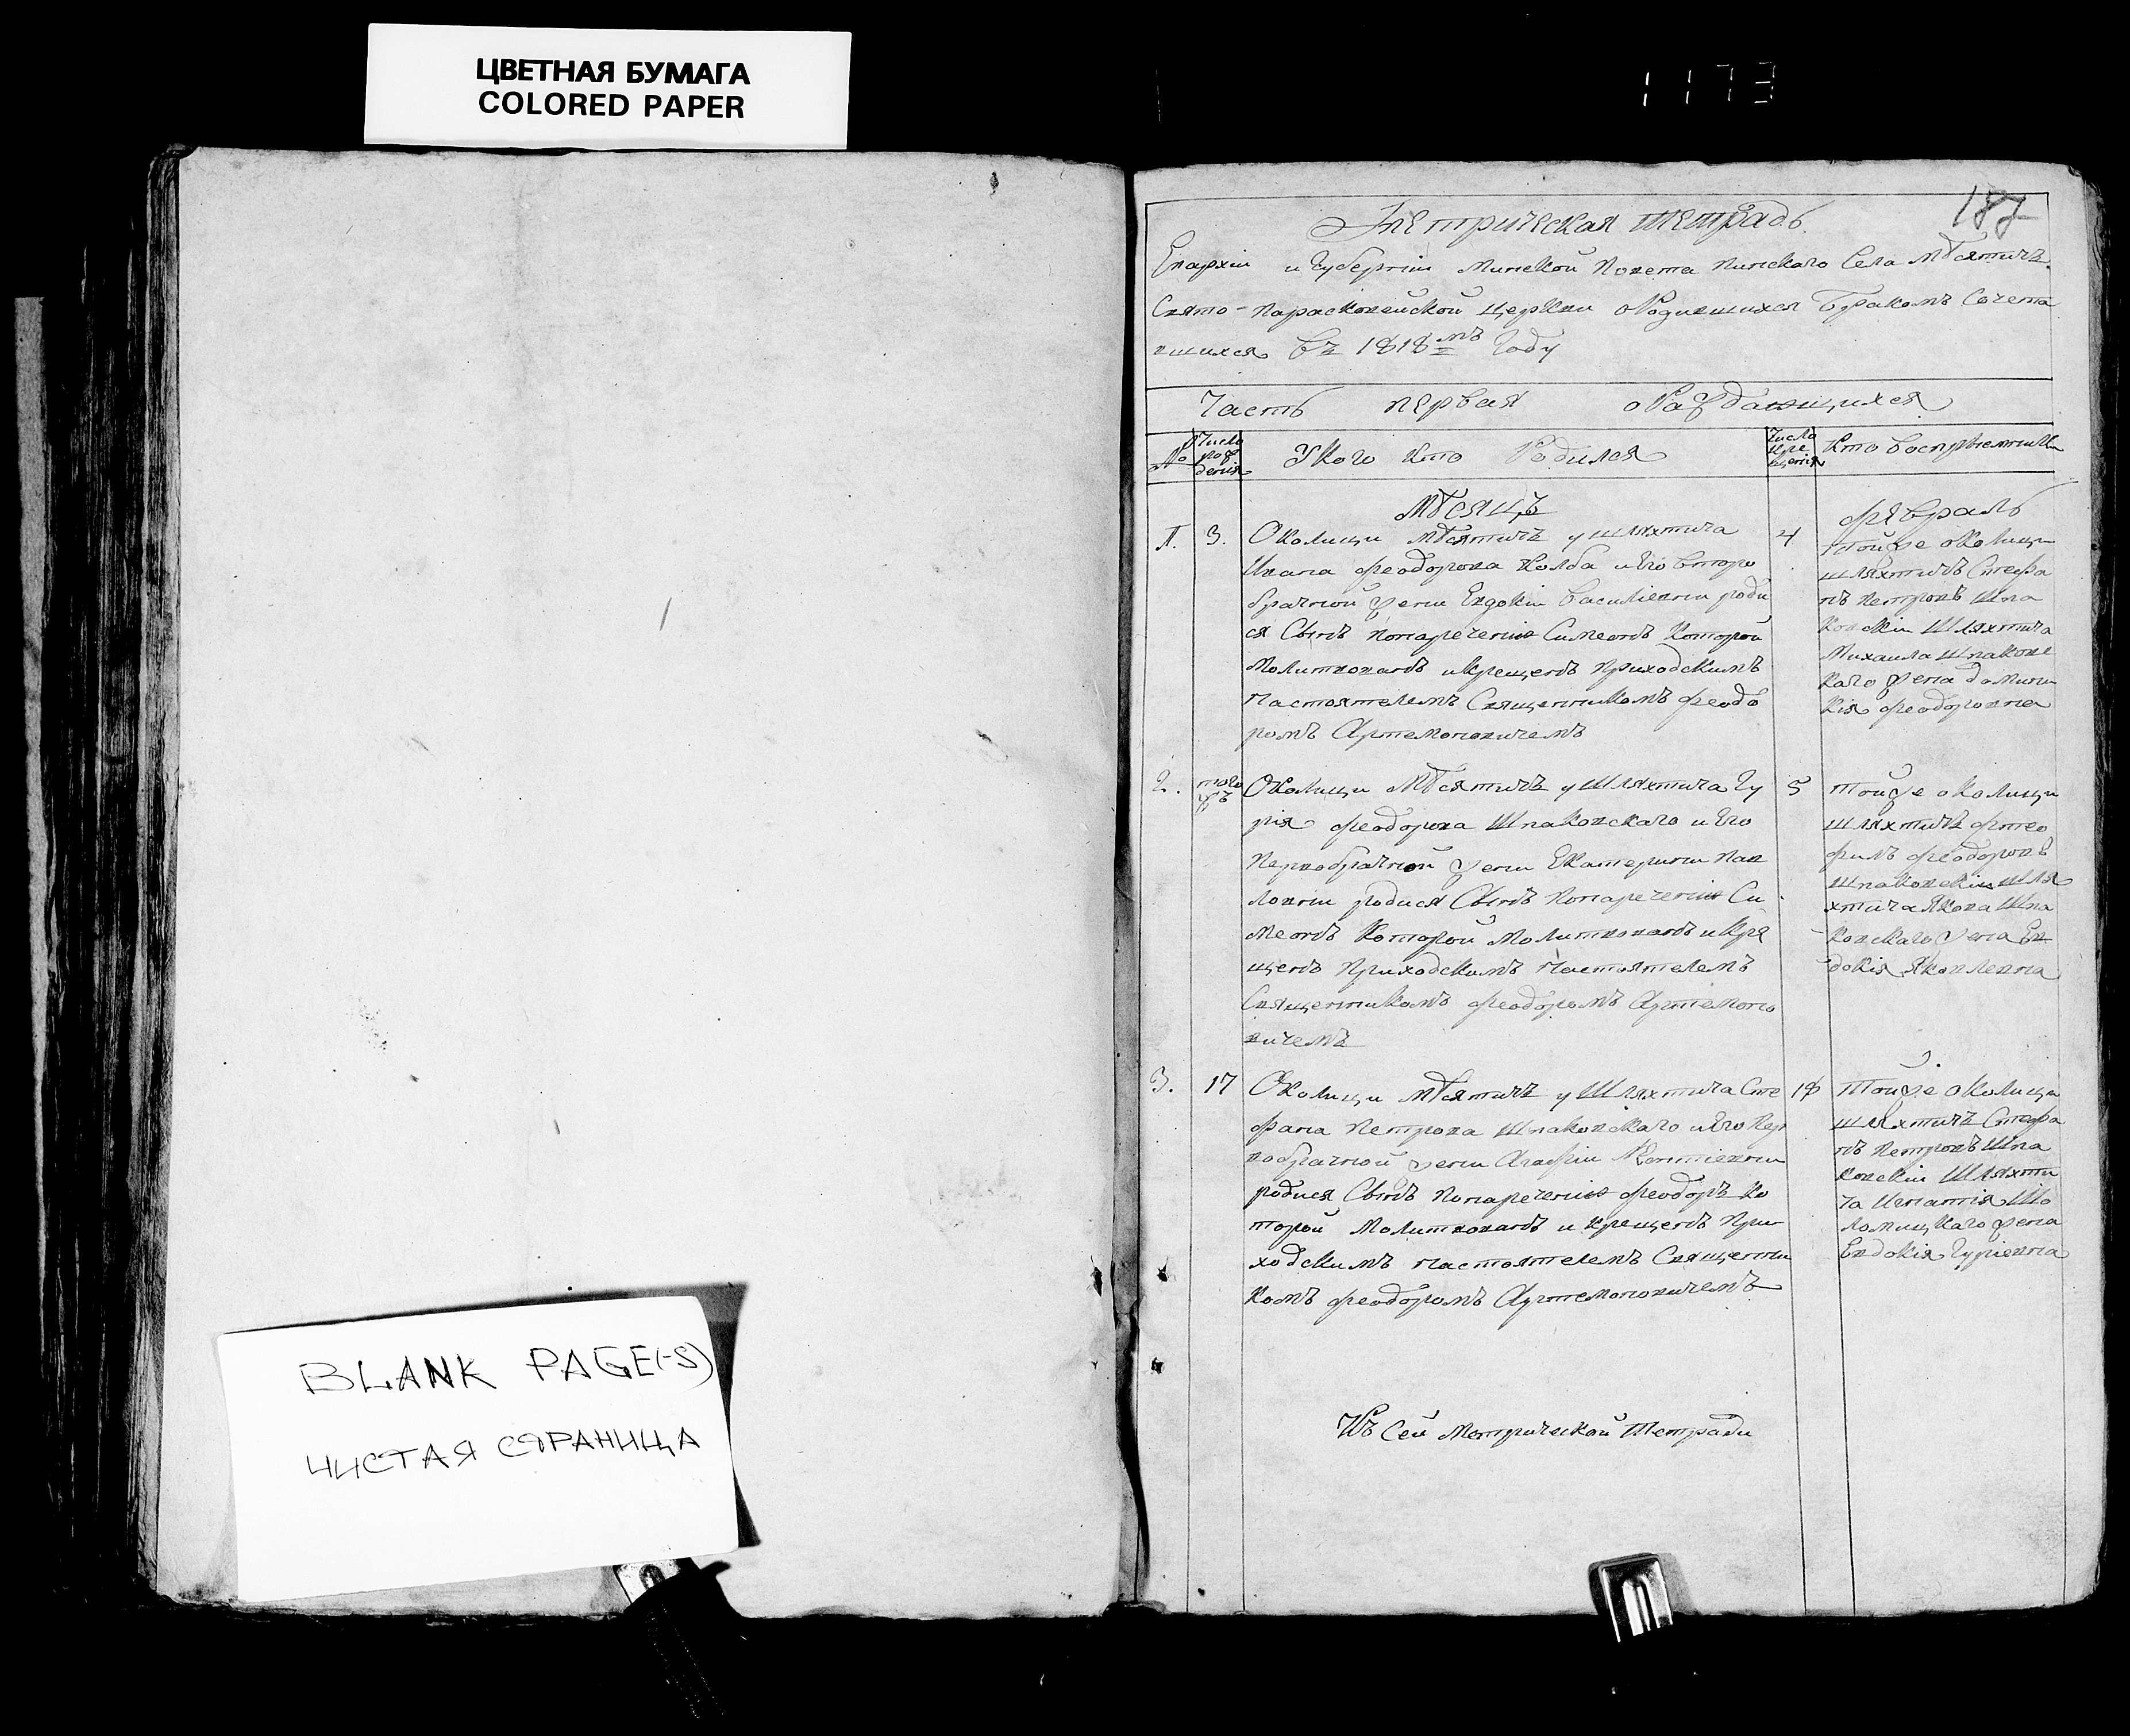 ЦВЕТНАЯ БУМАГА
COLORED PAPER
1173
BLANK PAGE(-S)
ЧИСТАЯ СТРАНИЦА
187
Метрическая тетрадь
Епархіи и Губерніи Минской Повета Пинскаго Села Мѣсятичъ
Свято-Парасковейской церкви о Родившихся Бракомъ Сочета
вшихся въ 1818мъ Году
Часть первая о Раждающихся
№ Число рождения У Кого кто Родился Число крещения Кто восприемники
Мѣсяцъ Февраль
1. 3. Околицы Мѣсятичъ у шляхтича
Ивана Феодорова Колба и Его второ
брачной жены Евдокіи Василіевны роди
ся Сынъ Понаречению Симеонъ Которой
Молитвованъ и крещенъ Приходскимъ
Настоятелемъ Священникомъ Феодо
ромъ Артемоновичемъ
4 тойже околицы
шляхтичъ Стефа
нъ Петровъ Шпа
ковскій Шляхтича
Михаила Шпаковс
каго жена Домини
кія Феодоровна
2. того жъ Околицы Мѣсятичъ у Шляхтича Гу
рія Феодорова Шпаковскаго и Его
Первобрачной жены Екатерины Пав
ловны родися Сынъ Понаречению Си
меонъ Которой Молитвованъ и Кре
щенъ Приходскимъ Настоятелемъ
Священникомъ Феодоромъ Артемоно
вичемъ
5 тойже околицы
шляхтичъ
филъ Феодоровъ
Шпаковскій шля
хтича Якова Шпа
ковскаго жена Ев
докія Яковлевна
3. 17 Околицы Мѣсятичъ у Шляхтича Сте
фана Петрова Шпаковскаго и Его Пер
вобрачной жены Агафіи
родися Сынъ Понаречению Феодоръ Ко
торой Молитвованъ и крещенъ При
ходскимъ Настоятелемъ Священни
комъ Феодоромъ Артемоновичемъ
18 Тойже околицы
шляхтичъ Стефа
нъ Петровъ Шпа
ковскій Шляхти
ча Игнатія Шо
ломицкаго жена
Евдокія Гуріевна
Къ Сей Метрической Тетради